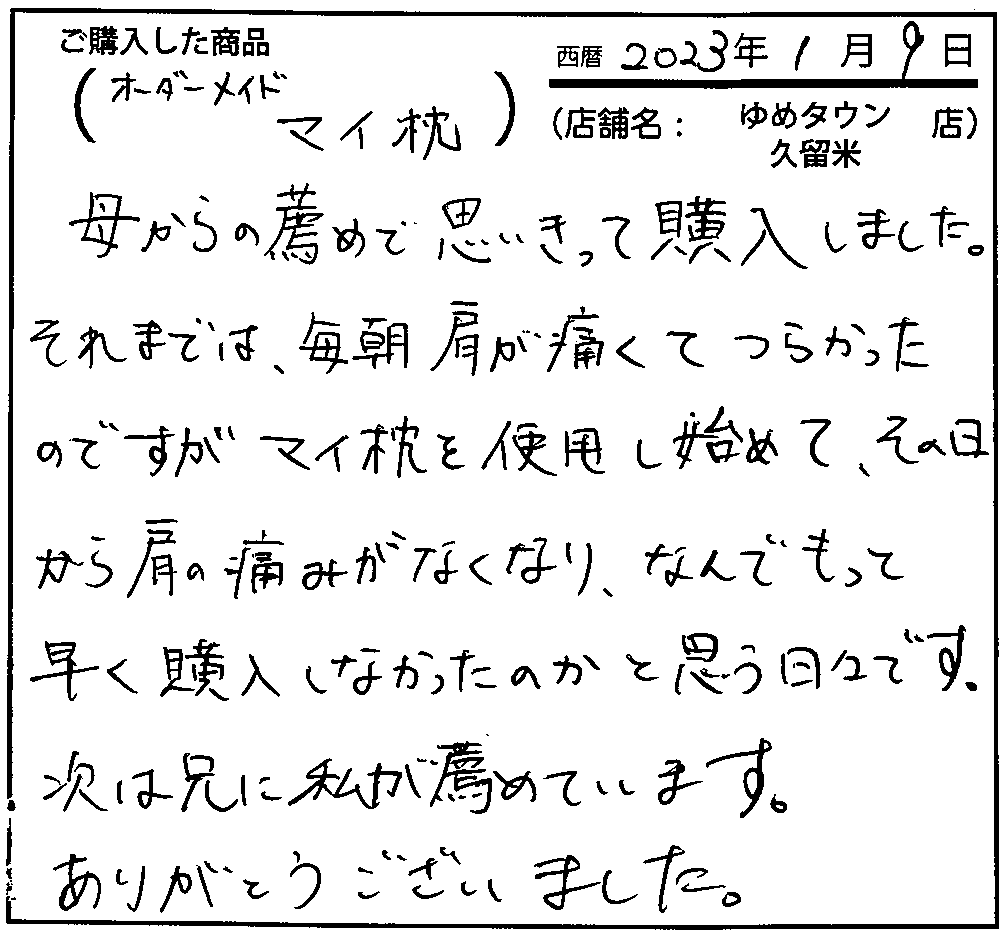 ご購入した商品
(オーダーメイド
マイ枕)
西暦 2023年1月9日
(店舗名： ゆめタウン 店)
久留米
母からの薦めで思いきって購入しました。
それまでは、毎朝肩が痛くてつらかった
のですがマイ枕を使用し始めて、その日
から肩の痛みがなくなり、なんでもって
早く購入しなかったのかと思う日々です。
次は兄に私が薦めています。
ありがとうございました。